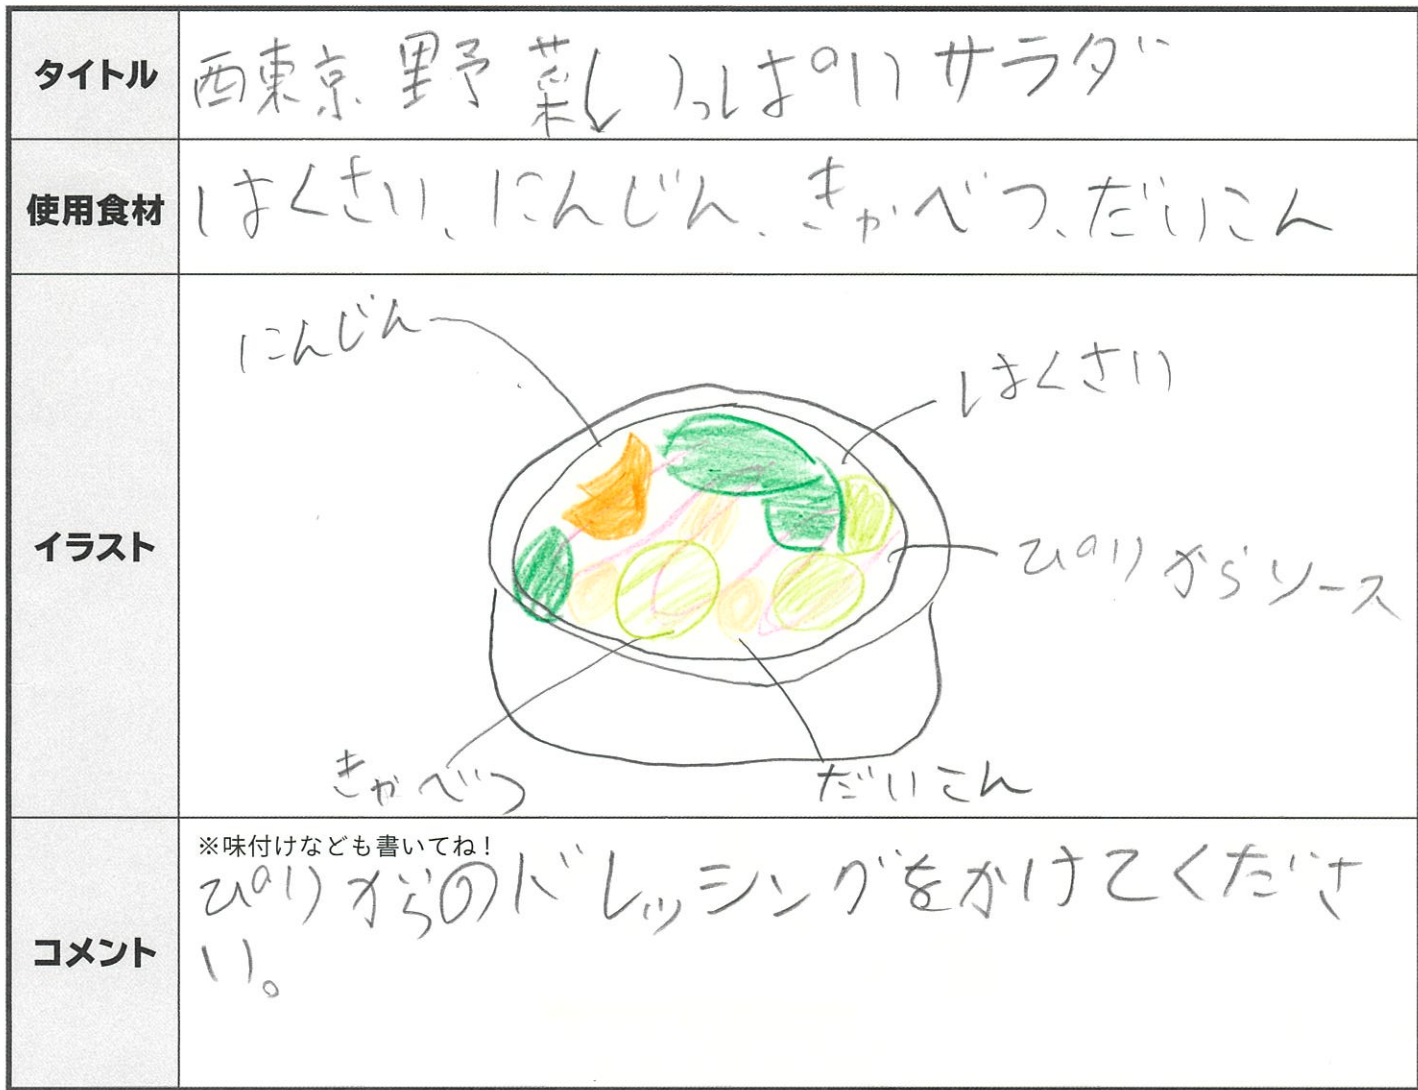 タイトル
西東京野菜いっぱいサラダ
使用食材
はくさい、にんじん、きゃべつ、だいこん
イラスト
にんじん
はくさい
ぴりからソース
きゃべつ
だいこん
コメント
※味付けなども書いてね！
ぴりからのドレッシングをかけてくださ
い。